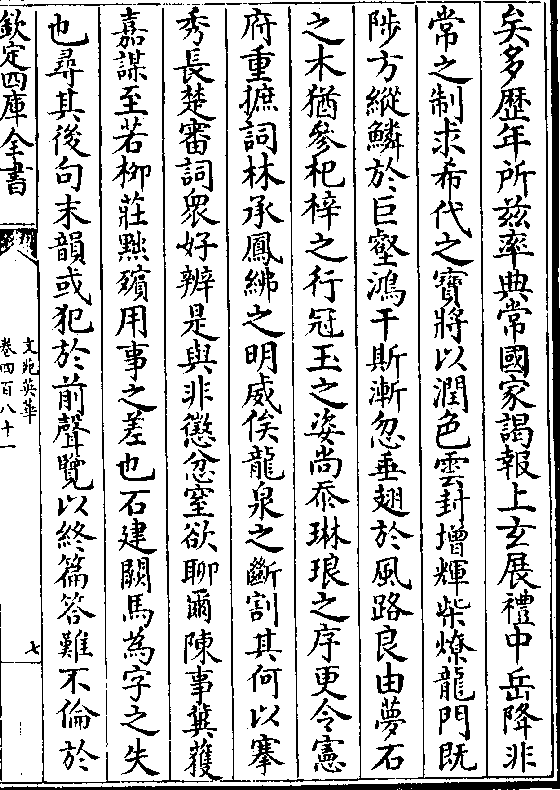 矣多歴年所兹率典常國家謁報上玄展禮中岳降非
常之制求希代之寶將以潤色雲封增輝柴燎龍門既
陟方縱鱗於巨壑鴻干斯漸忽垂翅於風路良由夢石
之木猶參杞梓之行冠玉之姿尚忝琳琅之序更令憲
府重摭詞林承鳳綍之明威俟龍泉之斷割其何以搴
秀長楚審詞衆好辨是與非懲忿窒欲聊爾陳事冀獲
嘉謀至若柳莊黙殯用事之差也石建闕馬為字之失
也尋其後句末韻或犯於前聲覽以終篇答難不倫於
欽定四庫全書
文苑英華
卷四百八十一
七